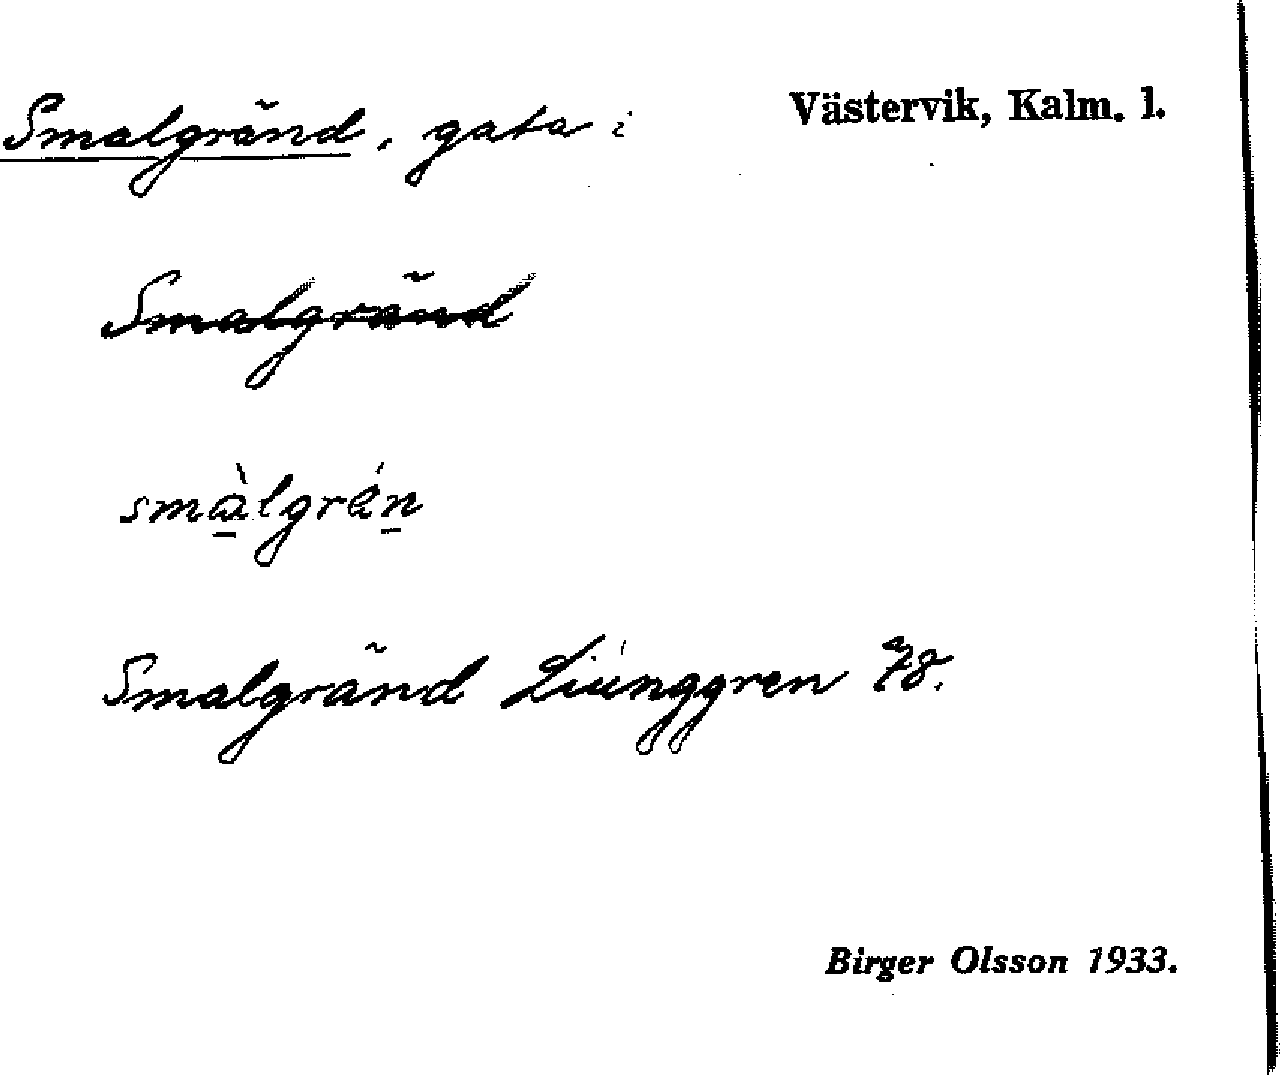 Smalgränd, gata i Västervik, Kalm. l.
Smalgränd
smàlgrén
Smalgränd Liunggren 78.
Birger Olsson 1933.